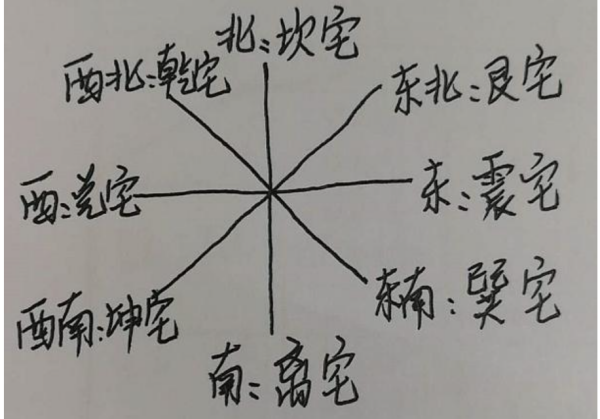 北:坎宅
西北:乾宅
东北:艮宅
西:兑宅
东:震宅
西南:坤宅
东南:巽宅
南:离宅